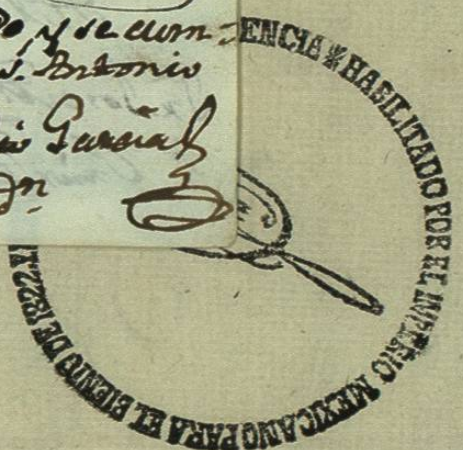 y se cum-
S. Antonio
Garcia
ENCIA * HABILITADO POR EL IMPERIO MEXICANO PARA EL BIENIO DE 1822 Y